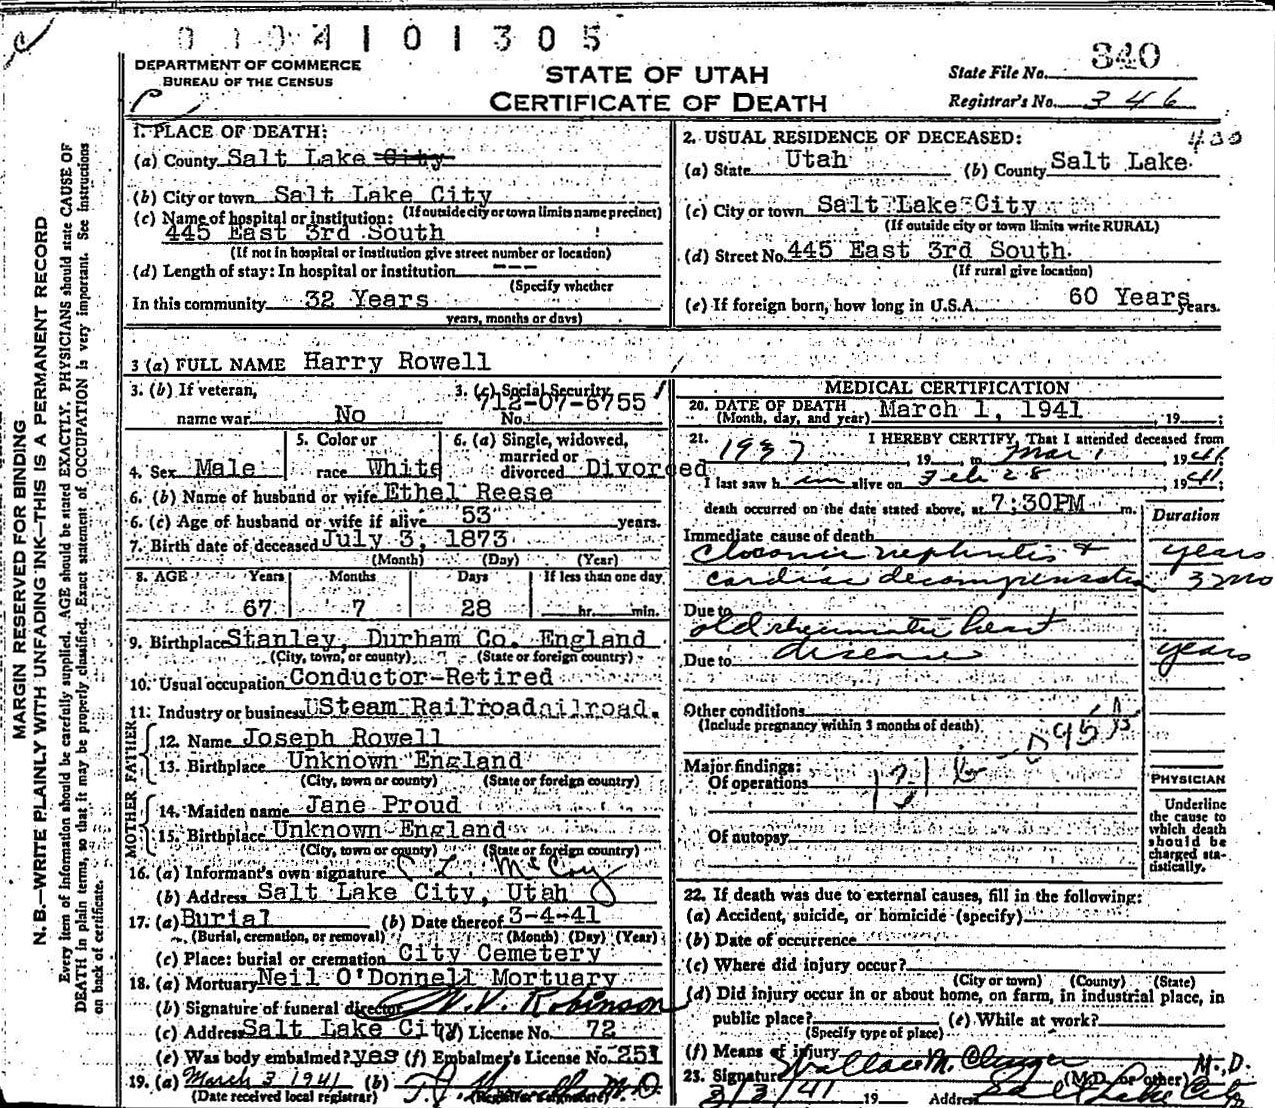 0 1 0 4 1 0 1 3 0 5
DEPARTMENT OF COMMERCE
BUREAU OF THE CENSUS
STATE OF UTAH
CERTIFICATE OF DEATH
State File No. 340
Registrar's No. 346
MARGIN RESERVED FOR BINDING
N. B.—WRITE PLAINLY WITH UNFADING INK—THIS IS A PERMANENT RECORD
Every item of information should be carefully supplied. AGE should be stated EXACTLY. PHYSICIANS should state CAUSE OF
DEATH in plain terms, so that it may be properly classified. Exact statement of OCCUPATION is very important. See instructions
on back of certificate.
1. PLACE OF DEATH:
(a) County Salt Lake City
(b) City or town Salt Lake City
(If outside city or town limits name precinct)
(c) Name of hospital or institution:
445 East 3rd South
(If not in hospital or institution give street number or location)
(d) Length of stay: In hospital or institution ---
(Specify whether
In this community 32 Years
years, months or days)
2. USUAL RESIDENCE OF DECEASED:
(a) State Utah (b) County Salt Lake
(c) City or town Salt Lake City
(If outside city or town limits write RURAL)
(d) Street No. 445 East 3rd South
(If rural give location)
(e) If foreign born, how long in U.S.A. 60 Years years.
3 (a) FULL NAME Harry Rowell
3. (b) If veteran,
name war No
3. (c) Social Security
No. 712-07-6755
4. Sex Male
5. Color or
race White
6. (a) Single, widowed,
married or
divorced Divorced
6. (b) Name of husband or wife Ethel Reese
6. (c) Age of husband or wife if alive 53 years.
7. Birth date of deceased July 3, 1873
(Month) (Day) (Year)
8. AGE Years Months Days If less than one day
67 7 28 hr. min.
9. Birthplace Stanley, Durham Co. England
(City, town, or county) (State or foreign country)
10. Usual occupation Conductor-Retired
11. Industry or business Steam Railroad
FATHER
12. Name Joseph Rowell
13. Birthplace Unknown England
(City, town or county) (State or foreign country)
MOTHER
14. Maiden name Jane Proud
15. Birthplace Unknown England
(City, town or county) (State or foreign country)
16. (a) Informant's own signature C. L. McCoy
(b) Address Salt Lake City, Utah
17. (a) Burial (b) Date thereof 3-4-41
(Burial, cremation, or removal) (Month) (Day) (Year)
(c) Place: burial or cremation City Cemetery
18. (a) Mortuary Neil O'Donnell Mortuary
(b) Signature of funeral director W. V. Robinson
(c) Address Salt Lake City (d) License No. 72
(e) Was body embalmed? yes (f) Embalmer's License No. 251
19. (a) March 3 1941 (b) M. D.
(Date received local registrar)
MEDICAL CERTIFICATION
20. DATE OF DEATH
(Month, day, and year) March 1, 1941, 19 ;
21. I HEREBY CERTIFY, That I attended deceased from
1937, 19 , to Mar 1 1941
I last saw him alive on Feb 28 1941;
death occurred on the date stated above, at 7:30PM m.
Duration
Immediate cause of death
Chronic nephritis + years
cardiac decompensation 3 mo
Due to
old rheumatic heart
Due to disease years
Other conditions
(Include pregnancy within 3 months of death)
Major findings:
Of operations
Of autopsy
PHYSICIAN
Underline
the cause to
which death
should be
charged sta-
tistically.
22. If death was due to external causes, fill in the following:
(a) Accident, suicide, or homicide (specify)
(b) Date of occurrence
(c) Where did injury occur?
(City or town) (County) (State)
(d) Did injury occur in or about home, on farm, in industrial place, in
public place? (e) While at work?
(Specify type of place)
(f) Means of injury
23. Signature Wallace M. M.D.
(M.D. or other)
3/3/41 19 Address Salt Lake City